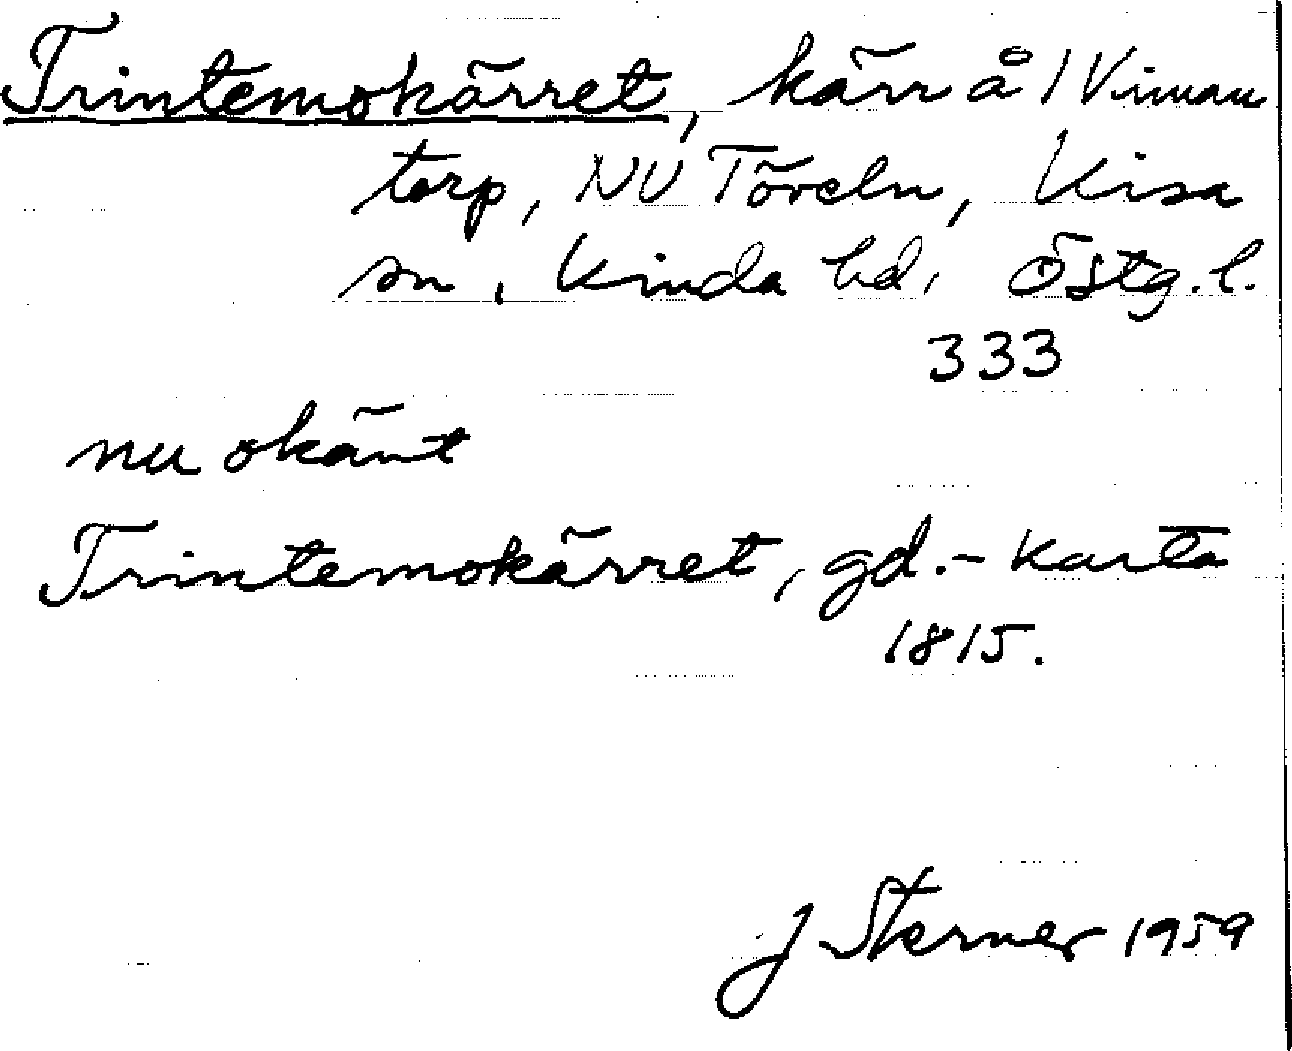 Trintemokärret, kärr å / Vinnan
torp, NV Töveln, Kisa
sn, Kinda hd, Östg. l.
333
nu okänt
Trintemokärret, gd. - karta
1815.
J Sterner 1959